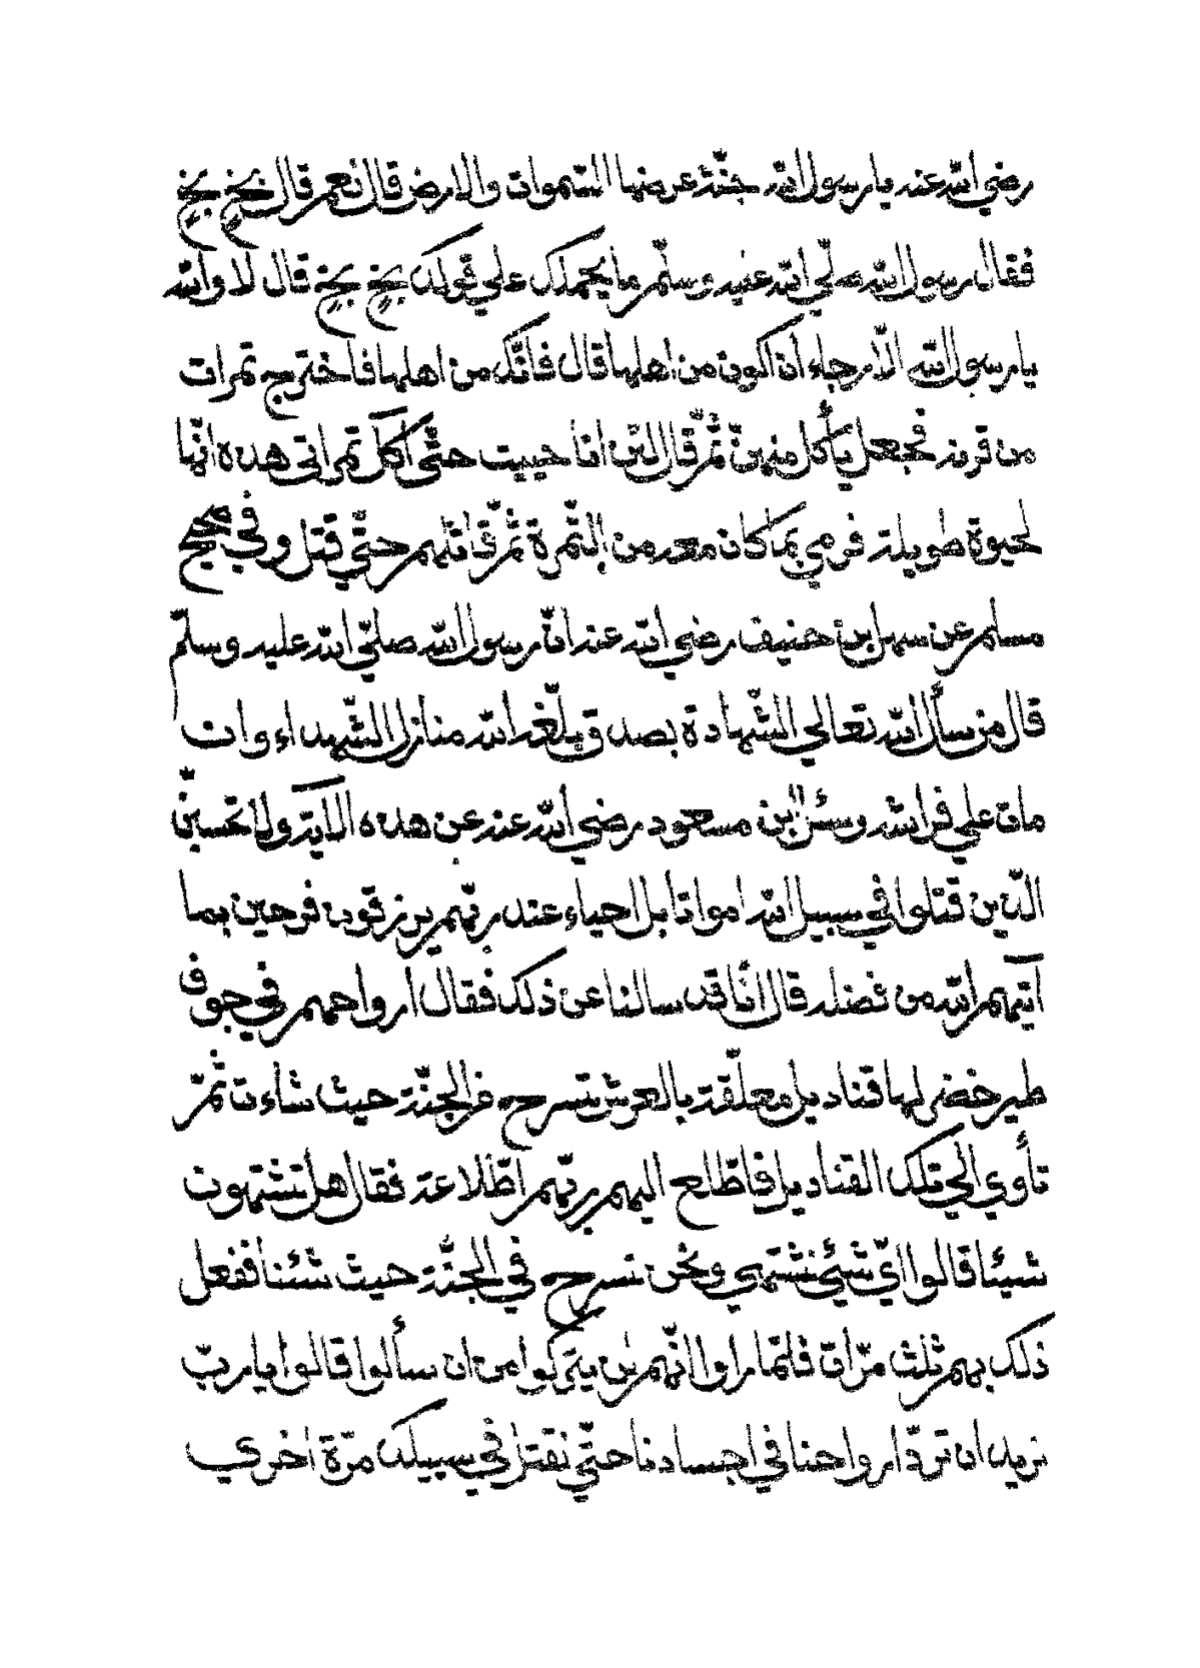 رضي الله عنه يا رسول الله جنّة عرضها السّموات والارض قال نعم قال بخٍ بخٍ
فقال رسول الله صلّي الله عليه وسلّم ما يحملك علي قولك بخٍ بخٍ قال لا والله
يا رسول الله الّا رجاء ان اكون من اهلها قال فانّك من اهلها فاخترج تمرات
من قرنه فجعل يأكل منهنّ ثمّ قال لئن انا حييت حتّي آكل تمراتي هذه انّها
لحيوة طويلة فرمي بما كان معه من التّمرة ثمّ قاتلهم حتّي قتل وفي صحيح
مسلم عن سهل بن حنيف رضي الله عنه انّ رسول الله صلّي الله عليه وسلّم
قال من سأل الله تعالي الشّهادة بصدق بلّغه الله منازل الشّهداء وان
مات علي فراشه وسئل ابن مسعود رضي الله عنه عن هذه الآية ولا تحسبنّ
الّذين قتلوا في سبيل الله امواتا بل احياء عند ربّهم يرزقون فرحين بما
آتيهم الله من فضله قال انّا قد سالنا عن ذلك فقال ارواحهم في جوف
طير خضر لها قناديل معلّقة بالعرش تسرح من الجنّة حيث شاءت ثمّ
تأوي الي تلك القناديل فاطّلع اليهم ربّهم اطّلاعة فقال هل تشتهون
شيئا قالوا ايّ شيئ نشتهي ونحن نسرح في الجنّة حيث شئنا ففعل
ذلك بهم ثلث مرّات فلمّا راوا انّهم لن يتركوا من ان سألوا قالوا يا ربّ
نريد ان تردّ ارواحنا في اجسادنا حتّي نقتل في سبيلك مرّة اخري